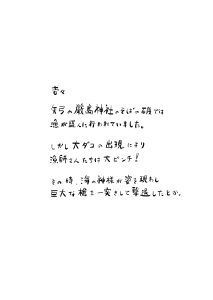 昔々
矢弓の厳島神社のそばの磯では
漁が盛んに行われていました。
しかし大ダコの出現により
漁師さんたちは大ピンチ!
その時、海の神様が姿を現わし
巨大な槍で一突きして撃退したとか。